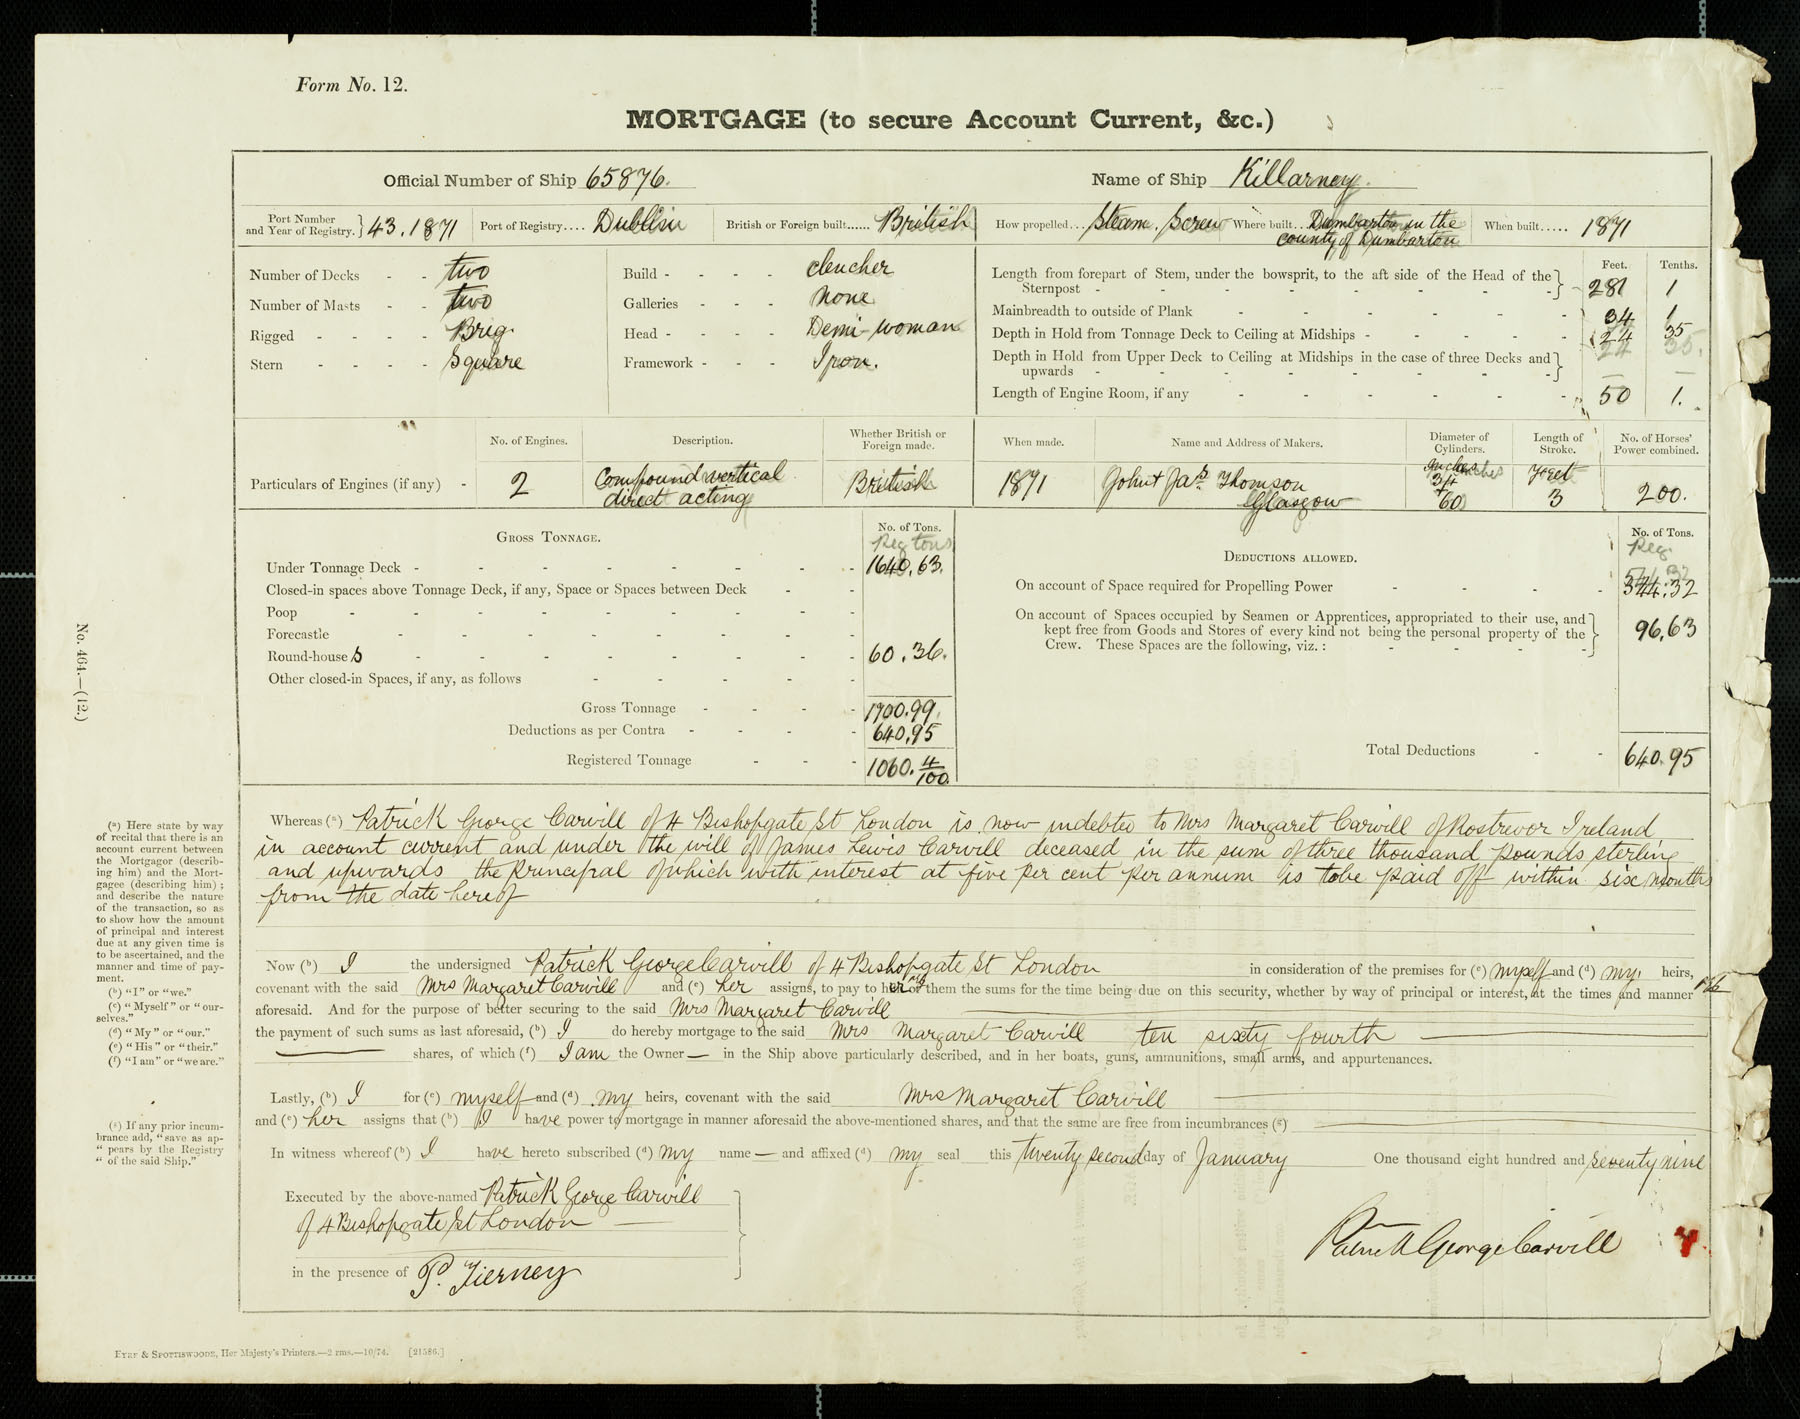 Form No. 12.
MORTGAGE (to secure Account Current, &c.)
Official Number of Ship 65876. Name of Ship Killarney.
Port Number and Year of Registry. } 43.1871 Port of Registry.... Dublin British or Foreign built...... British How propelled... Steam. Screw Where built... Dumbarton in the county of Dumbarton When built..... 1871
Number of Decks - - two
Number of Masts - - two
Rigged - - - - Brig.
Stern - - - - Square
Build - - - - clencher
Galleries - - - None
Head - - - - Demi-woman
Framework - - - Iron.
Feet. Tenths.
Length from forepart of Stem, under the bowsprit, to the aft side of the Head of the
Sternpost - - - - - - - - } 281 1
Mainbreadth to outside of Plank - - - - - - 34 1
Depth in Hold from Tonnage Deck to Ceiling at Midships - - - - 24 35
Depth in Hold from Upper Deck to Ceiling at Midships in the case of three Decks and
upwards - - - - - - - - } — —
Length of Engine Room, if any - - - - - - 50 1.
No. of Engines. Description. Whether British or Foreign made. When made. Name and Address of Makers. Diameter of Cylinders. Length of Stroke. No. of Horses' Power combined.
Particulars of Engines (if any) - 2 Compound vertical direct acting British 1871 John & Jas. Thomson Glasgow Inches 60 Feet 3 200.
GROSS TONNAGE. No. of Tons.
Reg tons
Under Tonnage Deck - - - - - - - - 1640.63.
Closed-in spaces above Tonnage Deck, if any, Space or Spaces between Deck - -
Poop - - - - - - - -
Forecastle - - - - - - -
Round-houses - - - - - - - - 60.36.
Other closed-in Spaces, if any, as follows - - - - -
Gross Tonnage - - - - 1700.99.
Deductions as per Contra - - - - 640.95
Registered Tonnage - - - 1060.4/100.
DEDUCTIONS ALLOWED. No. of Tons.
Reg.
On account of Space required for Propelling Power - - - - 544.32
On account of Spaces occupied by Seamen or Apprentices, appropriated to their use, and
kept free from Goods and Stores of every kind not being the personal property of the
Crew. These Spaces are the following, viz.: - - - - } 96.63
Total Deductions - - 640.95
No. 464.—(12.)
Whereas (a) Patrick George Carvill of 4 Bishopgate St London is now indebted to Mrs Margaret Carvill of Rostrevor Ireland
in account current and under the will of James Lewis Carvill deceased in the sum of three thousand pounds sterling
and upwards the principal of which with interest at five per cent per annum is to be paid off within six months
from the date hereof
Now (b) I the undersigned Patrick George Carvill of 4 Bishopgate St London in consideration of the premises for (c) myself and (d) my heirs,
covenant with the said Mrs Margaret Carvill and (e) her assigns, to pay to her or them the sums for the time being due on this security, whether by way of principal or interest, at the times and manner
aforesaid. And for the purpose of better securing to the said Mrs Margaret Carvill
the payment of such sums as last aforesaid, (b) I do hereby mortgage to the said Mrs Margaret Carvill ten sixty fourth
shares, of which (f) I am the Owner — in the Ship above particularly described, and in her boats, guns, ammunitions, small arms, and appurtenances.
Lastly, (b) I for (c) myself and (d) my heirs, covenant with the said Mrs Margaret Carvill
and (e) her assigns that (b) I have power to mortgage in manner aforesaid the above-mentioned shares, and that the same are free from incumbrances (g)
In witness whereof (b) I have hereto subscribed (d) my name — and affixed (d) my seal this twenty second day of January One thousand eight hundred and seventy nine
Executed by the above-named Patrick George Carvill
of 4 Bishopgate St London
in the presence of P. Tierney
Patrick George Carvill
(a) Here state by way
of recital that there is an
account current between
the Mortgagor (describ-
ing him) and the Mort-
gagee (describing him);
and describe the nature
of the transaction, so as
to show how the amount
of principal and interest
due at any given time is
to be ascertained, and the
manner and time of pay-
ment.
(b) "I" or "we."
(c) "Myself" or "our-
selves."
(d) "My" or "our."
(e) "His" or "their."
(f) "I am" or "we are."
(g) If any prior incum-
brance add, "save as ap-
"pears by the Registry
"of the said Ship."
EYRE & SPOTTISWOODE, Her Majesty's Printers.—2 rms.—10/74. [21586.]